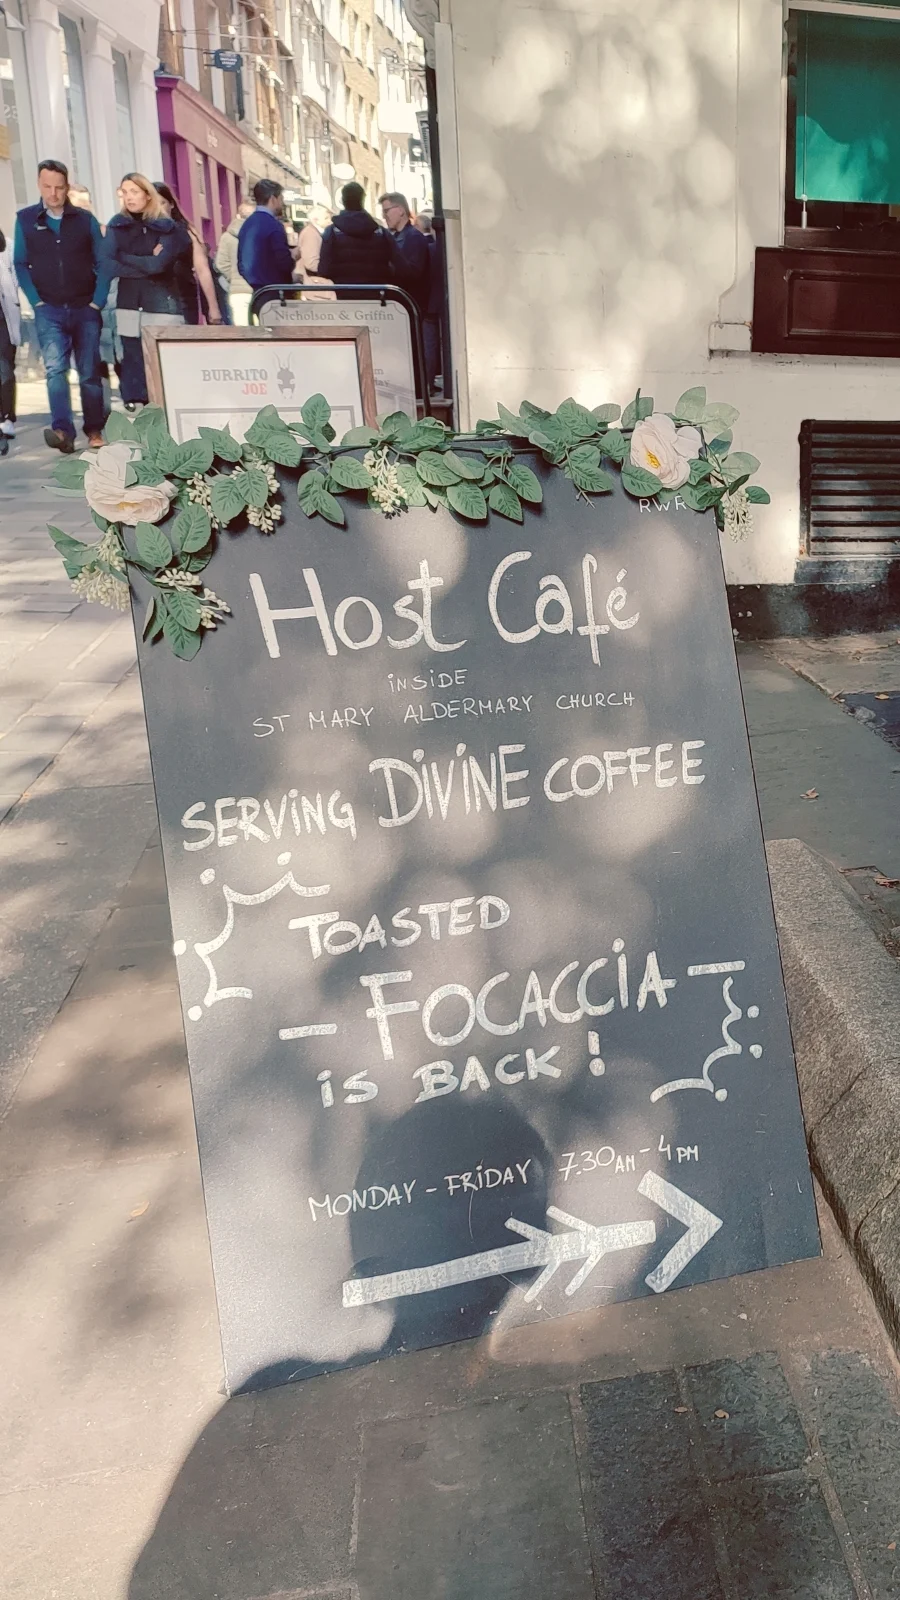 Nicholson & Griffin
BURRITO
JOE
RWR
Host Café
INSIDE
ST MARY ALDERMARY CHURCH
SERVING DIVINE COFFEE
TOASTED
- FOCACCIA -
is BACK!
MONDAY - FRIDAY 7.30AM - 4PM